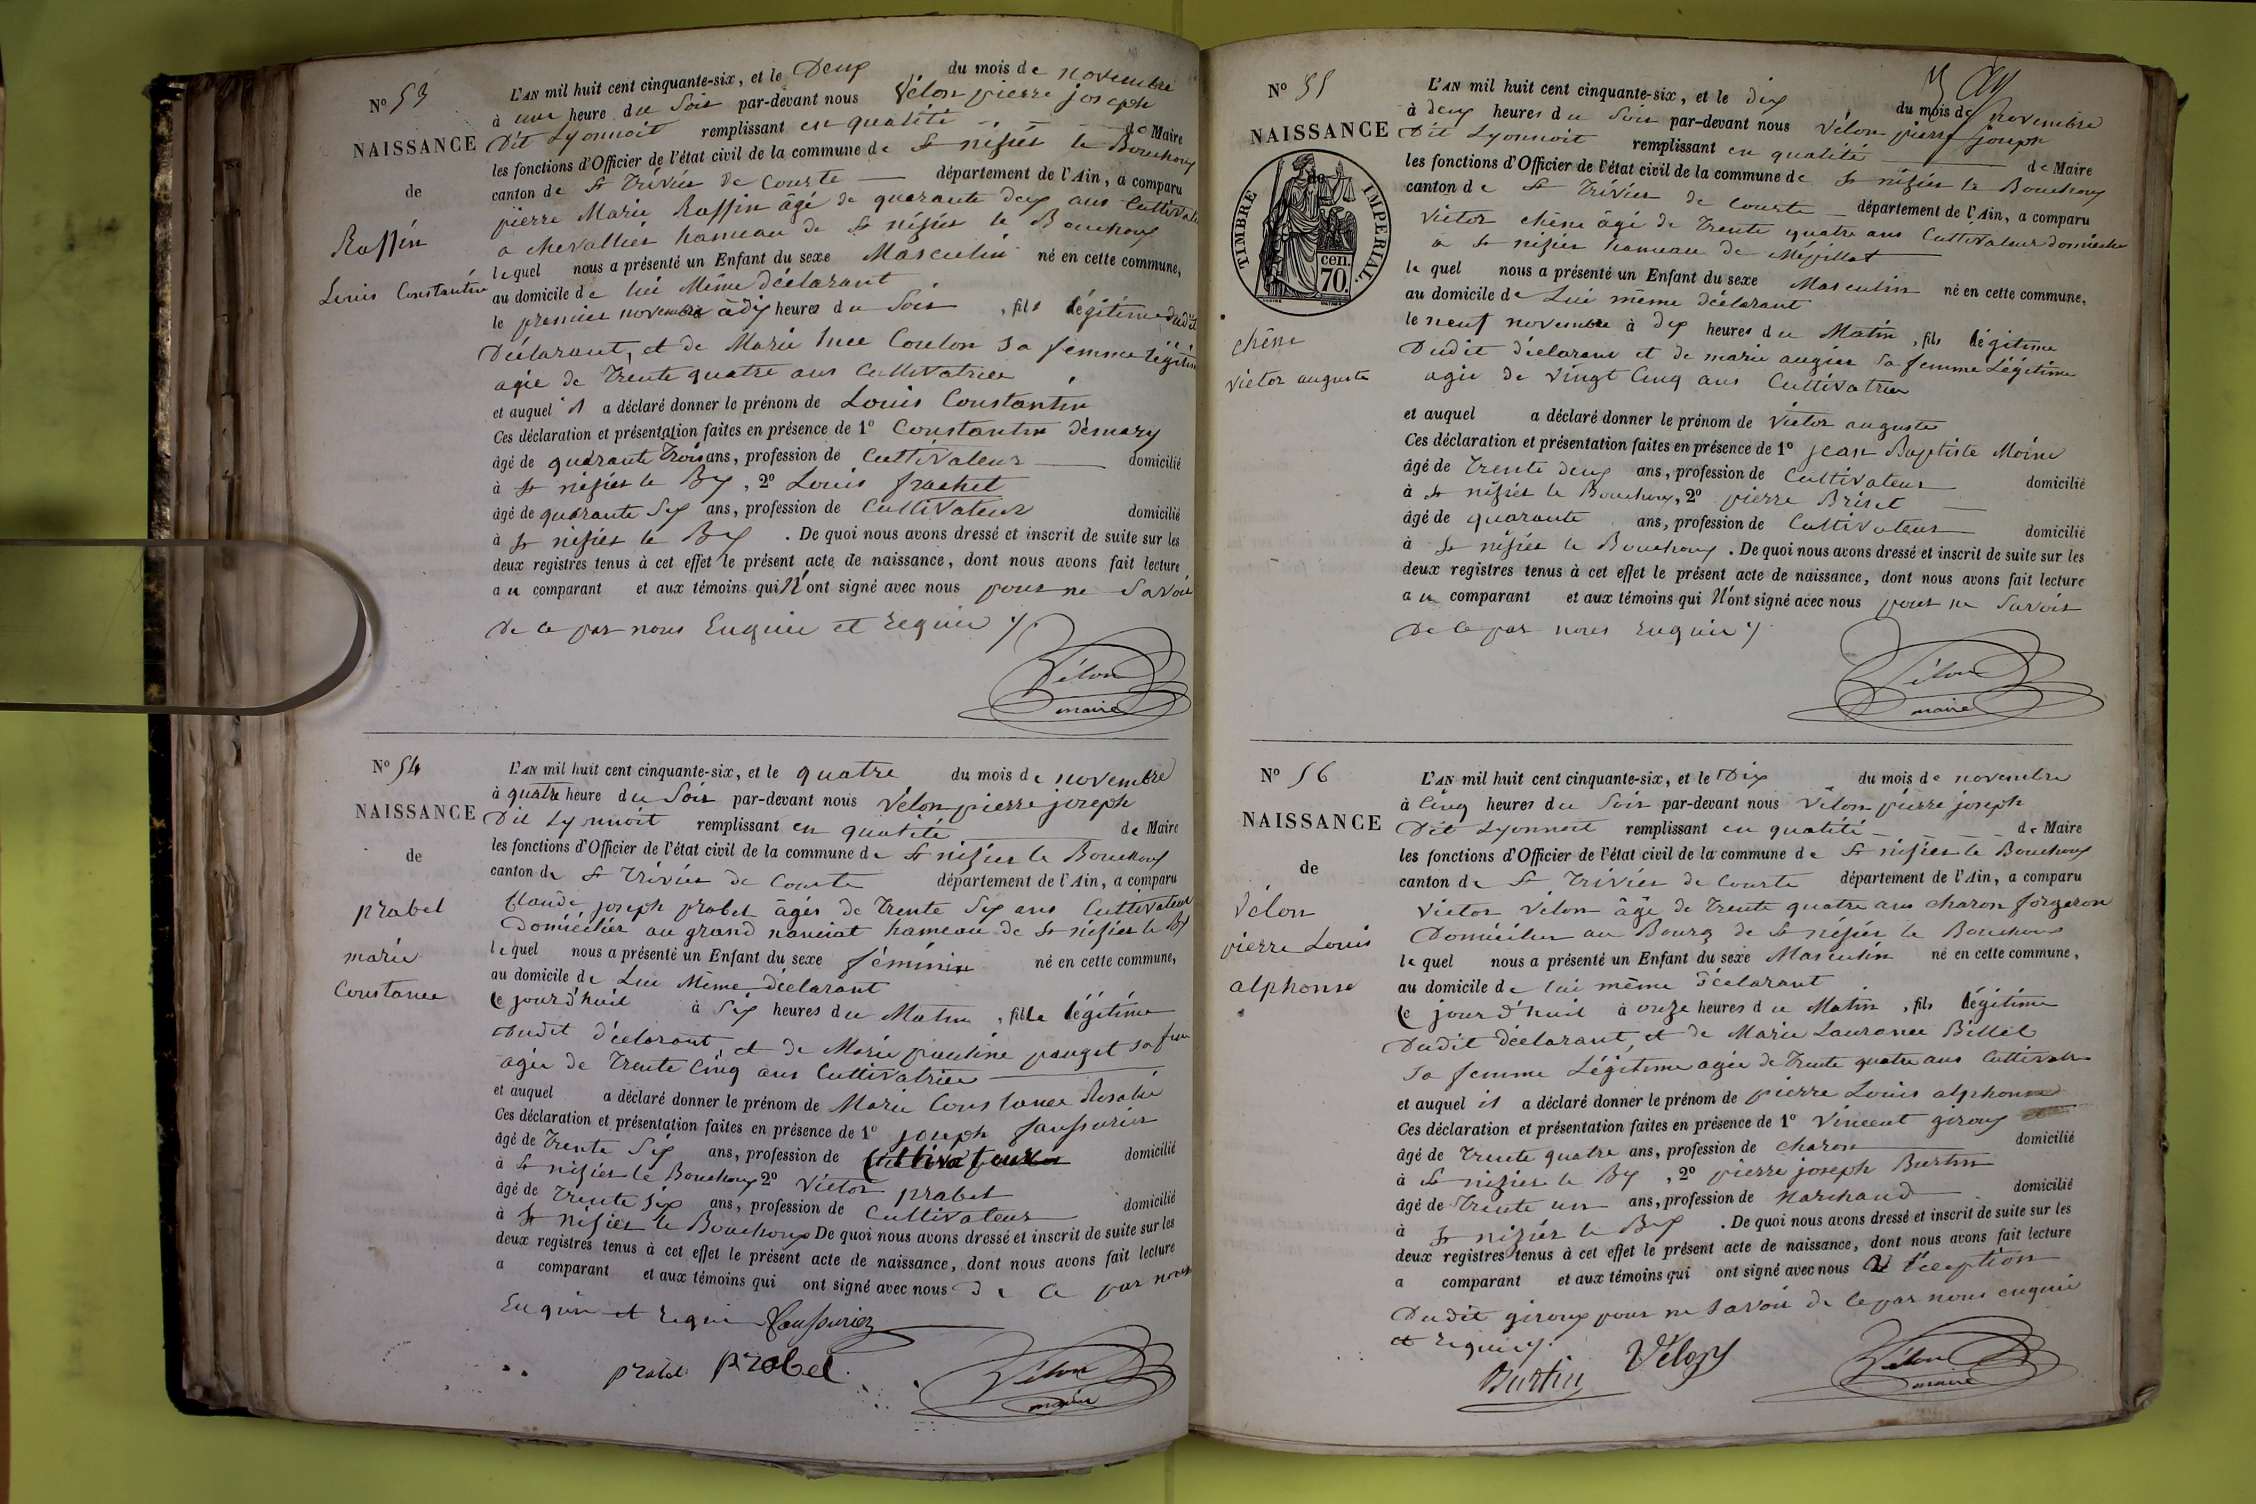 N° 53
NAISSANCE
de
Raffin
Louis Constantin
L'AN mil huit cent cinquante-six, et le Deux du mois de novembre
à une heure du Soir par-devant nous Vélon pierre joseph
Dit Lyonnoit remplissant en qualité de Maire
les fonctions d'Officier de l'état civil de la commune de St nizier le Bouchoux
canton de St Trivier de Courte département de l'Ain, a comparu
pierre Marie Raffin âgé de quarante deux ans Cultivateur
a chevallier hameau de St nizier le Bouchoux
lequel nous a présenté un Enfant du sexe Masculin né en cette commune,
au domicile de lui Même déclarant
le premier novembre à dix heures du Soir, fils légitime dudit
Déclarant, et de Marie Coulon sa femme légitime
agée de Trente quatre ans Cultivatrice
et auquel il a déclaré donner le prénom de Louis Constantin
Ces déclaration et présentation faites en présence de 1° Constantin démary
âgé de quarante Trois ans, profession de Cultivateur domicilié
à St nizier le Bx, 2° Louis frachet
âgé de quarante Six ans, profession de Cultivateur domicilié
à St nizier le Bx. De quoi nous avons dressé et inscrit de suite sur les
deux registres tenus à cet effet le présent acte de naissance, dont nous avons fait lecture
au comparant et aux témoins qui N'ont signé avec nous pour ne Savoir
de ce par nous Enquie et requie
Vélon
maire
N° 54
NAISSANCE
de
prabel
marie
Constance
L'AN mil huit cent cinquante-six, et le quatre du mois de novembre
à quatre heure du Soir par-devant nous Vélon pierre joseph
Dit Lyonnoit remplissant en qualité de Maire
les fonctions d'Officier de l'état civil de la commune de St nizier le Bouchoux
canton de St Trivier de Courte département de l'Ain, a comparu
Claude joseph prabel âgér de Trente Six ans Cultivateur
Domicilier au grand hameau de St nizier le Bx
lequel nous a présenté un Enfant du sexe féminin né en cette commune,
au domicile de Lui Même déclarant
Ce jourd'huil à Six heures du Matin, fille légitime
dudit déclarant, et de Marie pauline pauget sa
agée de Trente Cinq ans Cultivatrice
et auquel a déclaré donner le prénom de Marie Constance Rosalie
Ces déclaration et présentation faites en présence de 1° joseph faussurier
âgé de Trente Six ans, profession de Cultivateur domicilié
à St nizier le Bouchoux 2° Victor prabel
âgé de Trente Six ans, profession de Cultivateur domicilié
à St nizier le Bouchoux De quoi nous avons dressé et inscrit de suite sur les
deux registres tenus à cet effet le présent acte de naissance, dont nous avons fait lecture
a comparant et aux témoins qui ont signé avec nous de Ce par nous
Enquie et requie faussuriez
prabel prabel
Vélon
maire
N° 55
NAISSANCE
de
TIMBRE IMPERIAL.
70. cen.
chêne
victor auguste
L'AN mil huit cent cinquante-six, et le dix du mois de Novembre
à deux heures du Soir par-devant nous Vélon pierre joseph
Dit Lyonnoit remplissant en qualité de Maire
les fonctions d'Officier de l'état civil de la commune de St nizier le Bouchoux
canton de St Trivier de Courte département de l'Ain, a comparu
Victor chêne âgé de Trente quatre ans Cultivateur domicilié
a St nizier hameau de Mézillat
le quel nous a présenté un Enfant du sexe Masculin né en cette commune,
au domicile de Lui même déclarant
le neuf novembre à dix heures du Matin, fils légitime
Dudit déclarant et de marie augier sa femme Légitime
agée de vingt Cinq ans Cultivatrice
et auquel a déclaré donner le prénom de victor auguste
Ces déclaration et présentation faites en présence de 1° jean Baptiste Moine
âgé de Trente deux ans, profession de Cultivateur domicilié
à St nizier le Bouchoux, 2° pierre Briset
âgé de quarante ans, profession de Cultivateur domicilié
à St nizier le Bouchoux. De quoi nous avons dressé et inscrit de suite sur les
deux registres tenus à cet effet le présent acte de naissance, dont nous avons fait lecture
au comparant et aux témoins qui N'ont signé avec nous pour ne Savoir
De Ce par nous enquie
Vélon
maire
N° 56
NAISSANCE
de
vélon
pierre Louis
alphonse
L'AN mil huit cent cinquante-six, et le Dix du mois de novembre
à Cinq heures du Soir par-devant nous Vélon pierre joseph
Dit Lyonnoit remplissant en qualité de Maire
les fonctions d'Officier de l'état civil de la commune de St nizier le Bouchoux
canton de St Trivier de Courte département de l'Ain, a comparu
Victor Vélon âgé de Trente quatre ans charon forgeron
Domicilier au Bourg de St nizier le Bouchoux
lequel nous a présenté un Enfant du sexe Masculin né en cette commune,
au domicile de lui même déclarant
Ce jourd'huil à onze heures du Matin, fils légitime
Dudit déclarant, et de Marie Laurance Billet
sa femme Légitime agée de Trente quatre ans
et auquel il a déclaré donner le prénom de pierre Louis alphonse
Ces déclaration et présentation faites en présence de 1° Vincent giroux
âgé de Trente quatre ans, profession de charon domicilié
à St nizier le Bx, 2° pierre joseph Burtin
âgé de Trente un ans, profession de Marchand domicilié
à St nizier le Bx. De quoi nous avons dressé et inscrit de suite sur les
deux registres tenus à cet effet le présent acte de naissance, dont nous avons fait lecture
a comparant et aux témoins qui ont signé avec nous
Dudit giroux pour ne savoir de ce par nous enquie
et requie
Burtin Vélon
Vélon
maire